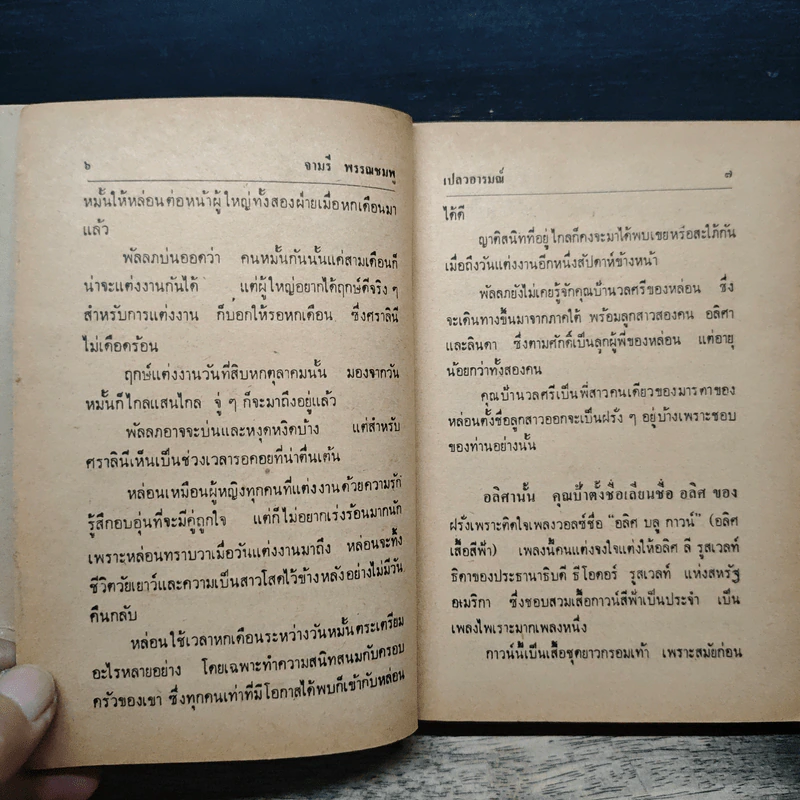 ๖ จามรี พรรณชมพู
หมั้นให้หล่อนต่อหน้าผู้ใหญ่ทั้งสองฝ่ายเมื่อหกเดือนมา
แล้ว
พัลลภบ่นออดว่า คนหมั้นกันนั้นแค่สามเดือนก็
น่าจะแต่งงานกันได้ แต่ผู้ใหญ่อยากได้ฤกษ์ดีจริง ๆ
สำหรับการแต่งงาน ก็บอกให้รอหกเดือน ซึ่งศราลินี
ไม่เดือดร้อน
ฤกษ์แต่งงานวันที่สิบหกตุลาคมนั้น มองจากวัน
หมั้นก็ไกลแสนไกล จู่ ๆ ก็จะมาถึงอยู่แล้ว
พัลลภอาจจะบ่นและหงุดหงิดบ้าง แต่สำหรับ
ศราลินีเห็นเป็นช่วงเวลารอคอยที่น่าตื่นเต้น
หล่อนเหมือนผู้หญิงทุกคนที่แต่งงานด้วยความรัก
รู้สึกอบอุ่นที่จะมีคู่ถูกใจ แต่ก็ไม่อยากเร่งร้อนมากนัก
เพราะหล่อนทราบว่าเมื่อวันแต่งงานมาถึง หล่อนจะทิ้ง
ชีวิตวัยเยาว์และความเป็นสาวโสดไว้ข้างหลังอย่างไม่มีวัน
คืนกลับ
หล่อนใช้เวลาหกเดือนระหว่างวันหมั้นตระเตรียม
อะไรหลายอย่าง โดยเฉพาะทำความสนิทสนมกับครอบ
ครัวของเขา ซึ่งทุกคนเท่าที่มีโอกาสได้พบก็เข้ากับหล่อน
เปลวอารมณ์ ๗
ได้ดี
ญาติสนิทที่อยู่ไกลก็คงจะมาได้พบเขยหรือสะใภ้กัน
เมื่อถึงวันแต่งงานอีกหนึ่งสัปดาห์ข้างหน้า
พัลลภยังไม่เคยรู้จักคุณป้านวลศรีของหล่อน ซึ่ง
จะเดินทางขึ้นมาจากภาคใต้ พร้อมลูกสาวสองคน อลิศา
และลินดา ซึ่งตามศักดิ์เป็นลูกผู้พี่ของหล่อน แต่อายุ
น้อยกว่าทั้งสองคน
คุณป้านวลศรีเป็นพี่สาวคนเดียวของมารดาของ
หล่อนตั้งชื่อลูกสาวออกจะเป็นฝรั่ง ๆ อยู่บ้างเพราะชอบ
ของท่านอย่างนั้น
อลิศานั้น คุณป้าตั้งชื่อเลียนชื่อ อลิศ ของ
ฝรั่งเพราะติดใจเพลงวอลซ์ชื่อ "อลิศ บลู กาวน์" (อลิศ
เสื้อสีฟ้า) เพลงนี้คนแต่งจงใจแต่งให้อลิศ ลี รูสเวลท์
ธิดาของประธานาธิบดี ธีโอดอร์ รูสเวลท์ แห่งสหรัฐ
อเมริกา ซึ่งชอบสวมเสื้อกาวน์สีฟ้าเป็นประจำ เป็น
เพลงไพเราะมากเพลงหนึ่ง
กาวน์นี้เป็นเสื้อชุดยาวกรอมเท้า เพราะสมัยก่อน